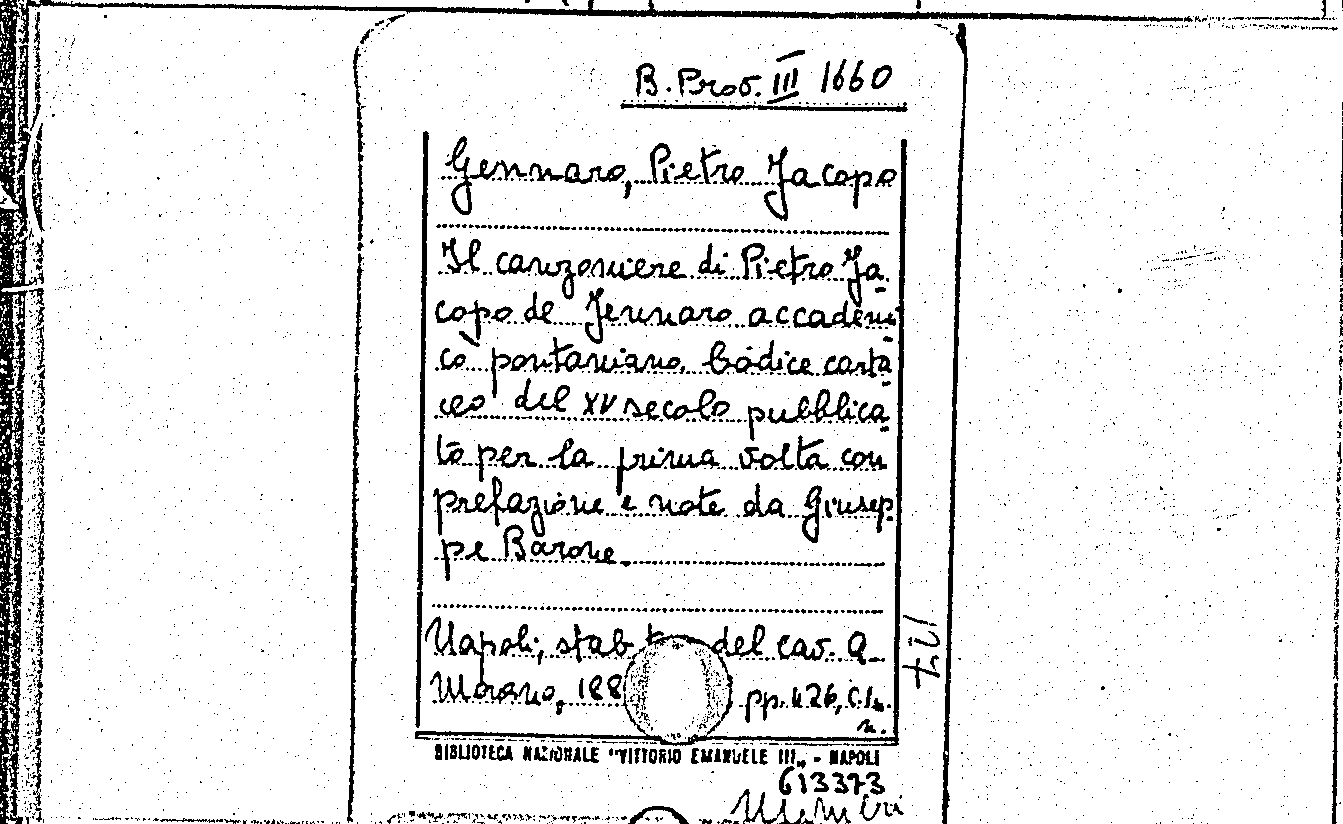 B. Prov. III 1660
Gennaro, Pietro Jacopo
Il canzoniere di Pietro Ja
copo de Jennaro accademi
co pontaniano. Codice carta
ceo del XV secolo pubblica
to per la prima volta con
prefazione e note da Giusep
pe Barone.
Napoli, stab. del cav. A.
Morano, 188 pp. 426, c. 1 n.
n.
BIBLIOTECA NAZIONALE "VITTORIO EMANUELE III" - NAPOLI
613373